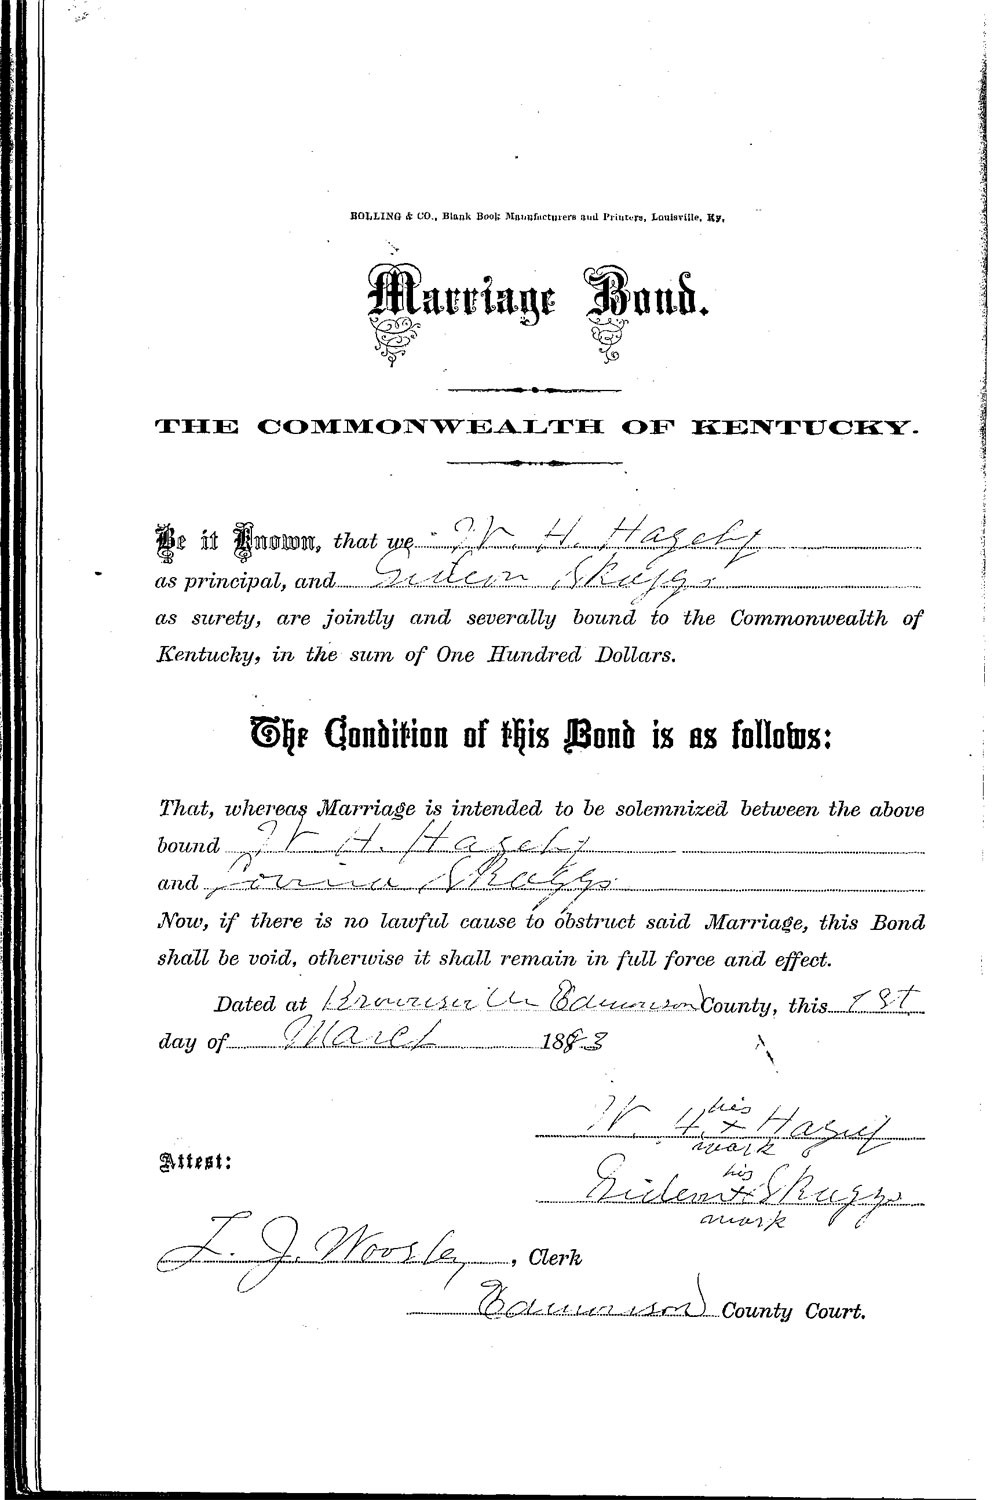 BOLLING & CO., Blank Book Manufacturers and Printers, Louisville, Ky,
Marriage Bond.
THE COMMONWEALTH OF KENTUCKY.
Be it Known, that we W. H. Hagely
as principal, and Gideon Skaggs
as surety, are jointly and severally bound to the Commonwealth of
Kentucky, in the sum of One Hundred Dollars.
The Condition of this Bond is as follows:
That, whereas Marriage is intended to be solemnized between the above
bound W H. Hagely
and Skaggs
Now, if there is no lawful cause to obstruct said Marriage, this Bond
shall be void, otherwise it shall remain in full force and effect.
Dated at Brownsville Edmonson County, this 1st
day of March 1883
his
W. H. + 
mark
Attest:
his
Gideon + Skaggs
mark
L. J. Woosley, Clerk
Edmonson County Court.